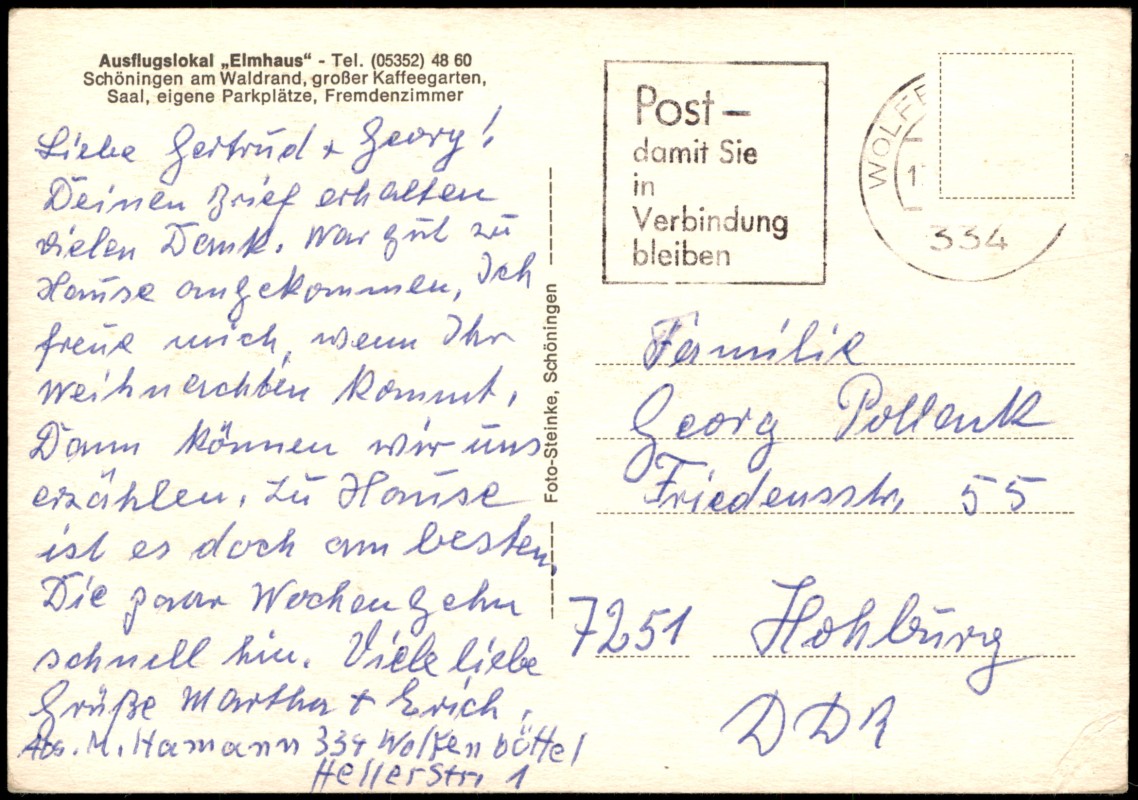 Ausflugslokal „Elmhaus“ - Tel. (05352) 48 60
Schöningen am Waldrand, großer Kaffeegarten,
Saal, eigene Parkplätze, Fremdenzimmer
Liebe Gertrud + Georg!
Deinen Brief erhalten
vielen Dank. War gut zu
Hause angekommen, Ich
freue mich, wenn Ihr
Weihnachten kommt.
Dann können wir uns
erzählen. Zu Hause
ist es doch am besten.
Die paar Wochen gehn
schnell hin. Viele liebe
Grüße Martha + Erich.
Abs. M. Hamann 334 Wolfenbüttel
Hellerstr. 1
Foto-Steinke, Schöningen
Post –
damit Sie
in
Verbindung
bleiben
WOLFE
17
334
Familie
Georg Pollenk
Friedensstr. 55
7251 Hohburg
DDR